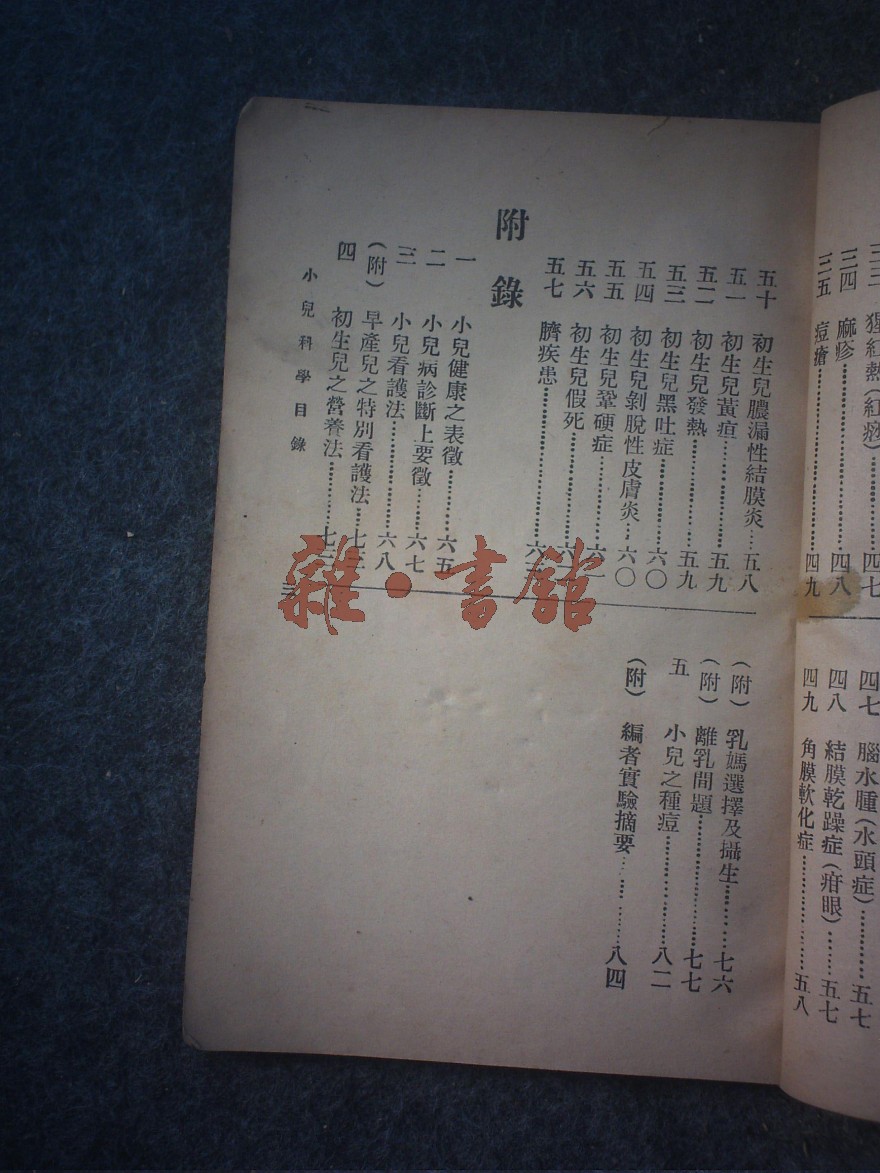 三三 猩紅熱(紅痧)……四七
三四 麻疹……四八
三五 痘瘡……四九
四七 腦水腫(水頭症)……五七
四八 結膜乾躁症(疳眼)……五七
四九 角膜軟化症……五八
五十 初生兒膿漏性結膜炎……五八
五一 初生兒黃疸……五九
五二 初生兒發熱……五九
五三 初生兒黑吐症……六〇
五四 初生兒剝脫性皮膚炎……六〇
五五 初生兒鞏硬症……六一
五六 初生兒假死……六
五七 臍疾患……六
附錄
一 小兒健康之表徵……六五
二 小兒病診斷上要徵……六七
三 小兒看護法……六八
(附) 早產兒之特別看護法……七
四 初生兒之營養法……七
(附) 乳媽選擇及攝生……七六
(附) 離乳問題……七七
五 小兒之種痘……八二
(附) 編者實驗摘要……八四
小兒科學目錄
三
雜·書館